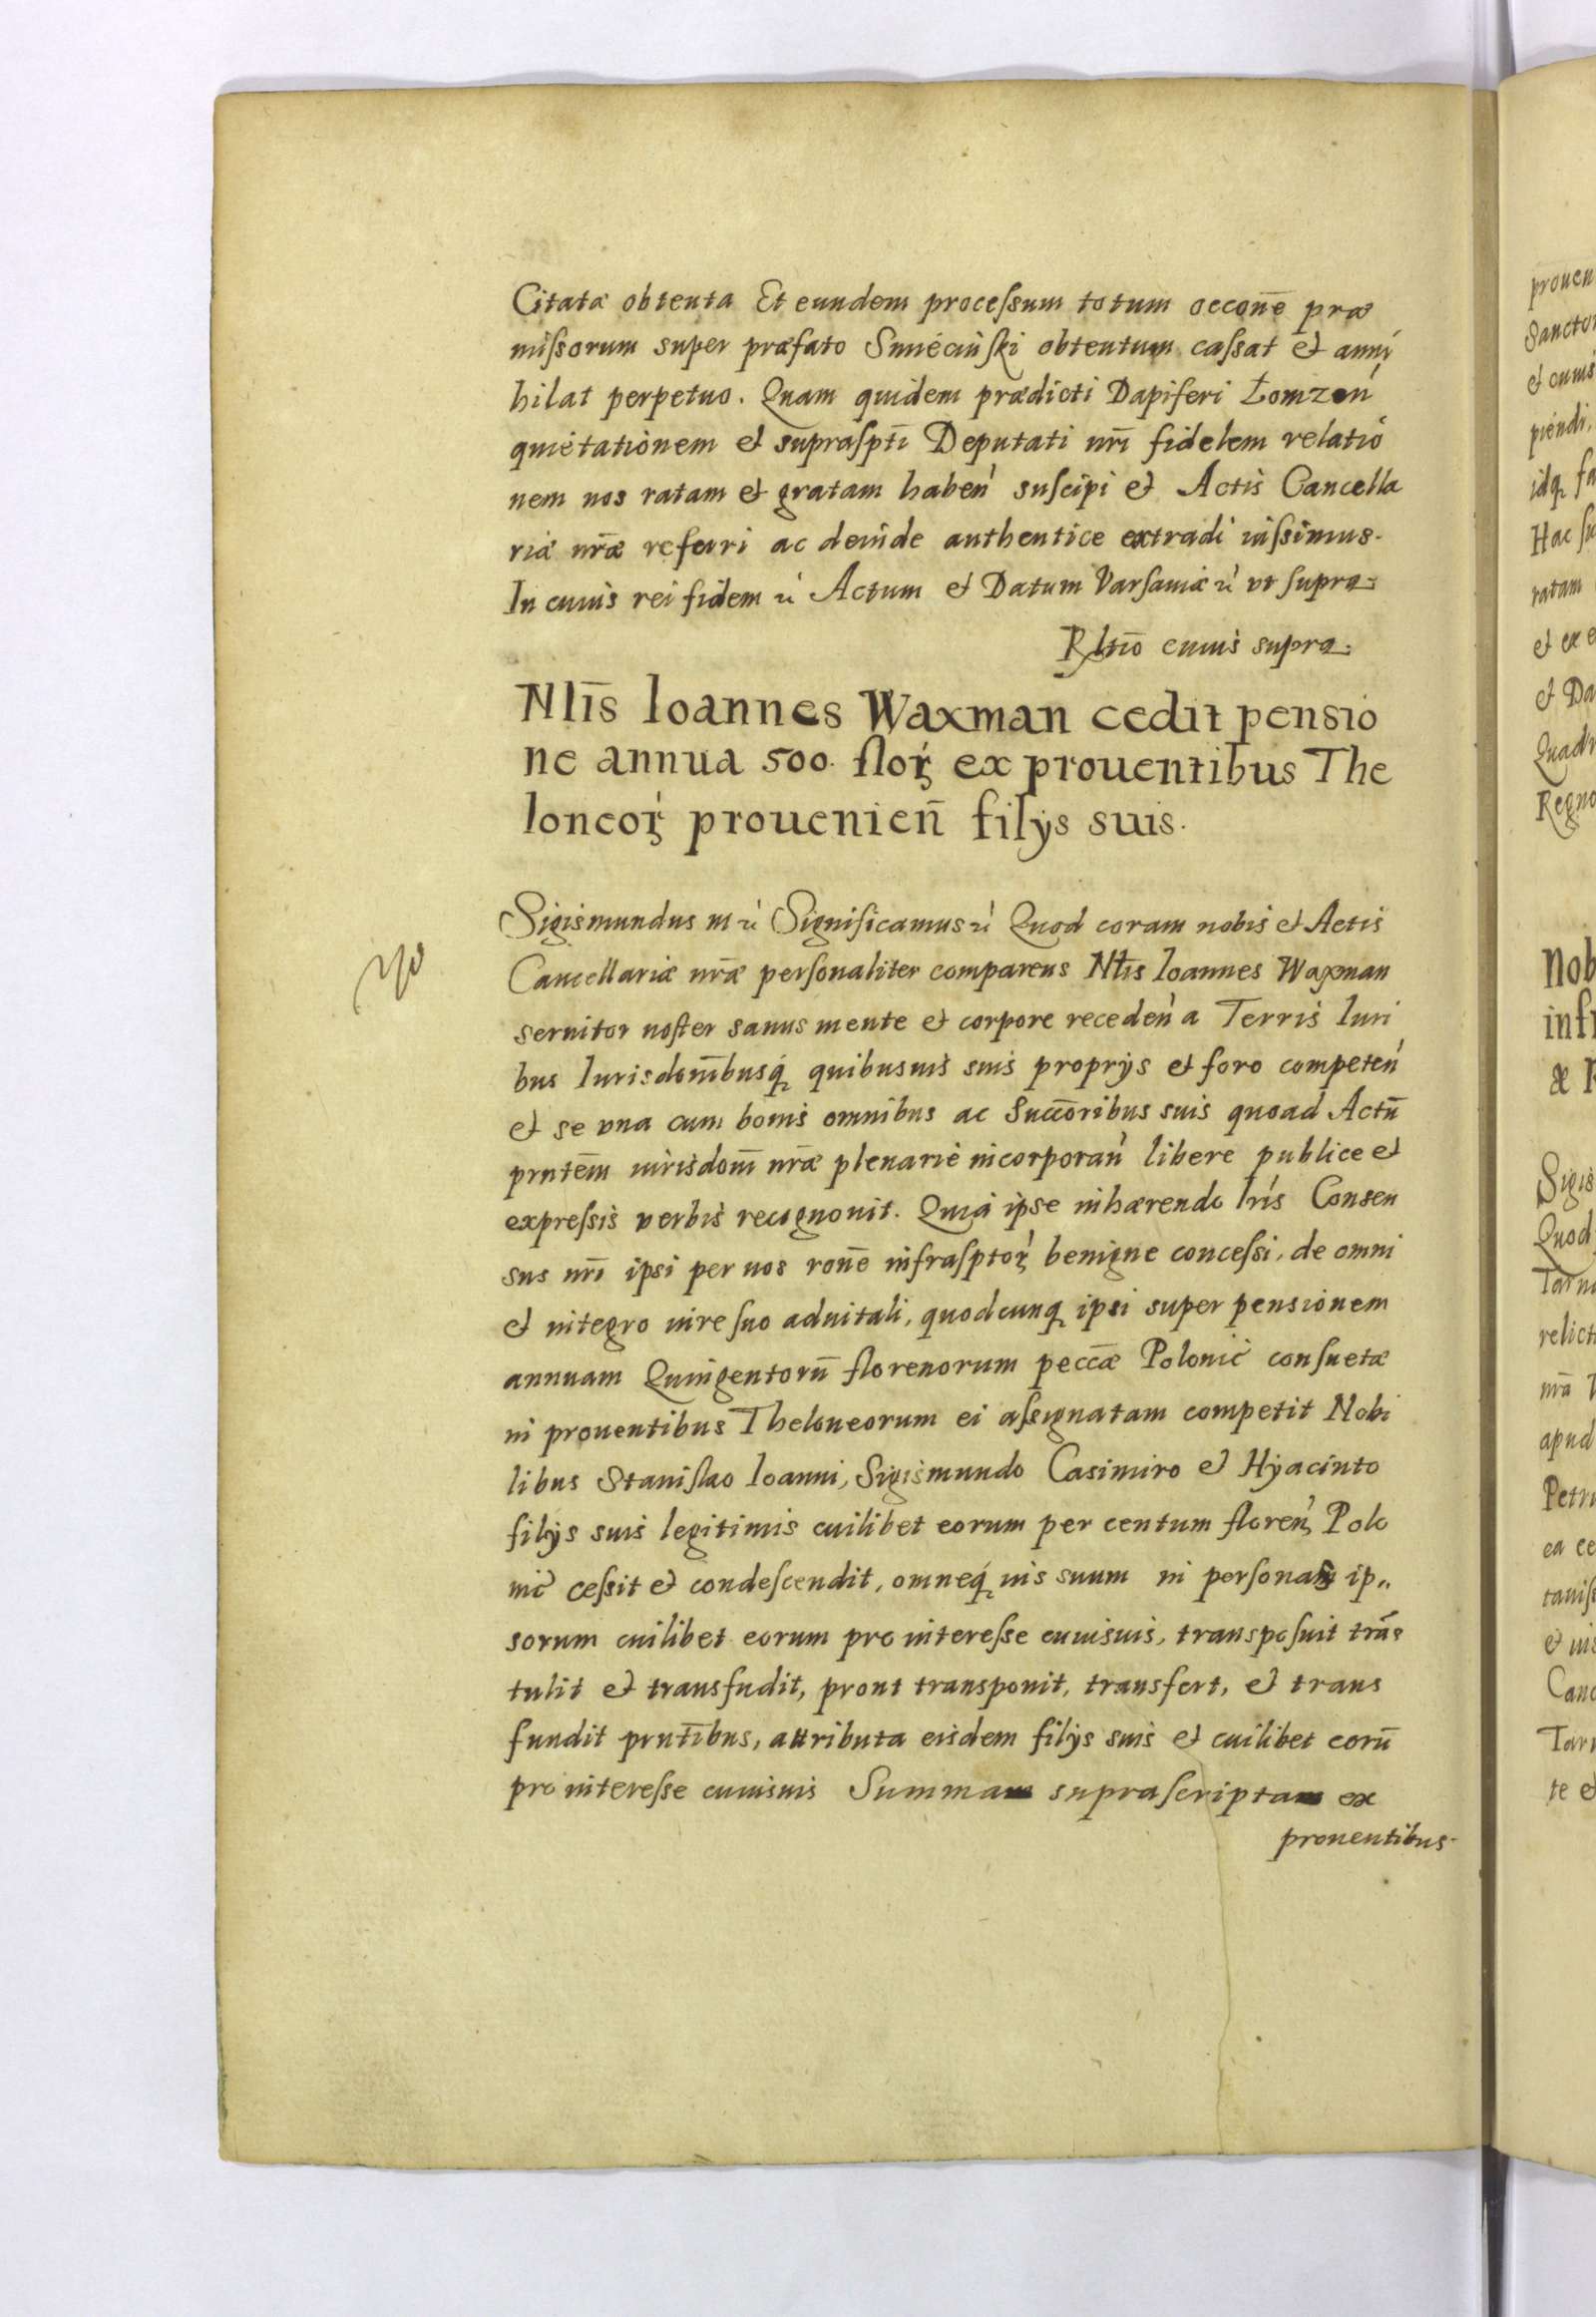 Citatæ obtenta Et eundem processum totum occone̅ præ
missorum super præfato Smieciński obtentum cassat et anni
hilat perpetuo. Quam quidem prædicti Dapiferi Łomzen̕
quietationem et supraspti̅ Deputati nri̅ fidelem relatio
nem nos ratam et gratam haben̕ suscipi et Actis Cancella
riæ nr̅æ referri ac deinde authentice extradi iussimus.
In cuius rei fidem &̕ Actum et Datum Varsauiæ &̕ vt supra.
Rltio̅ cuius supra.
Nli̅s Ioannes Waxman cedit pensio
ne annua 500. floꝝ ex prouentibus The
loneoꝝ prouenien̅ filijs suis.
Sigismundus III &̕ Significamus &̕ Quod coram nobis et Actis
Cancellariæ nr̅æ personaliter comparens Nli̅s Ioannes Waxman
seruitor noster sanus mente et corpore receden̕ a Terris Iuri
bus Iurisdoni̅busq́ quibusuis suis proprijs et foro competen̕
et se vna cum bonis omnibus ac Succo̅ribus suis quoad Actu̅
pnte̅m iurisdoni̅ nr̅æ plenarie incorporan̕ libere publice et
expressis verbis recognouit. Quia ipse inhærendo lri̕s Consen
sus nri̅ ipsi per nos rone̅ infrasptoꝝ benigne concessi, de omni
et integro iure suo aduitali, quodcunq ipsi super pensionem
annuam Quingentoru̅ florenorum pecc̅æ Polonic̕ consuetæ
in prouentibus Theloneorum ei assignatam competit Nobi
libus Stanislao Ioanni, Sigismundo Casimiro et Hyacinto
filijs suis legitimis cuilibet eorum per centum floren̕ Polo
nic̕ cessit et condescendit, omneq́ ius suum in personas ip„
sorum cuilibet eorum pro interesse cuiusuis, transposuit tra̅s
tulit et transfudit, prout transponit, transfert, et trans
fundit pnti̅bus, attributa eisdem filijs suis et cuilibet eoru̅
pro interesse cuiusuis Summam suprascriptam ex
prouentibus.